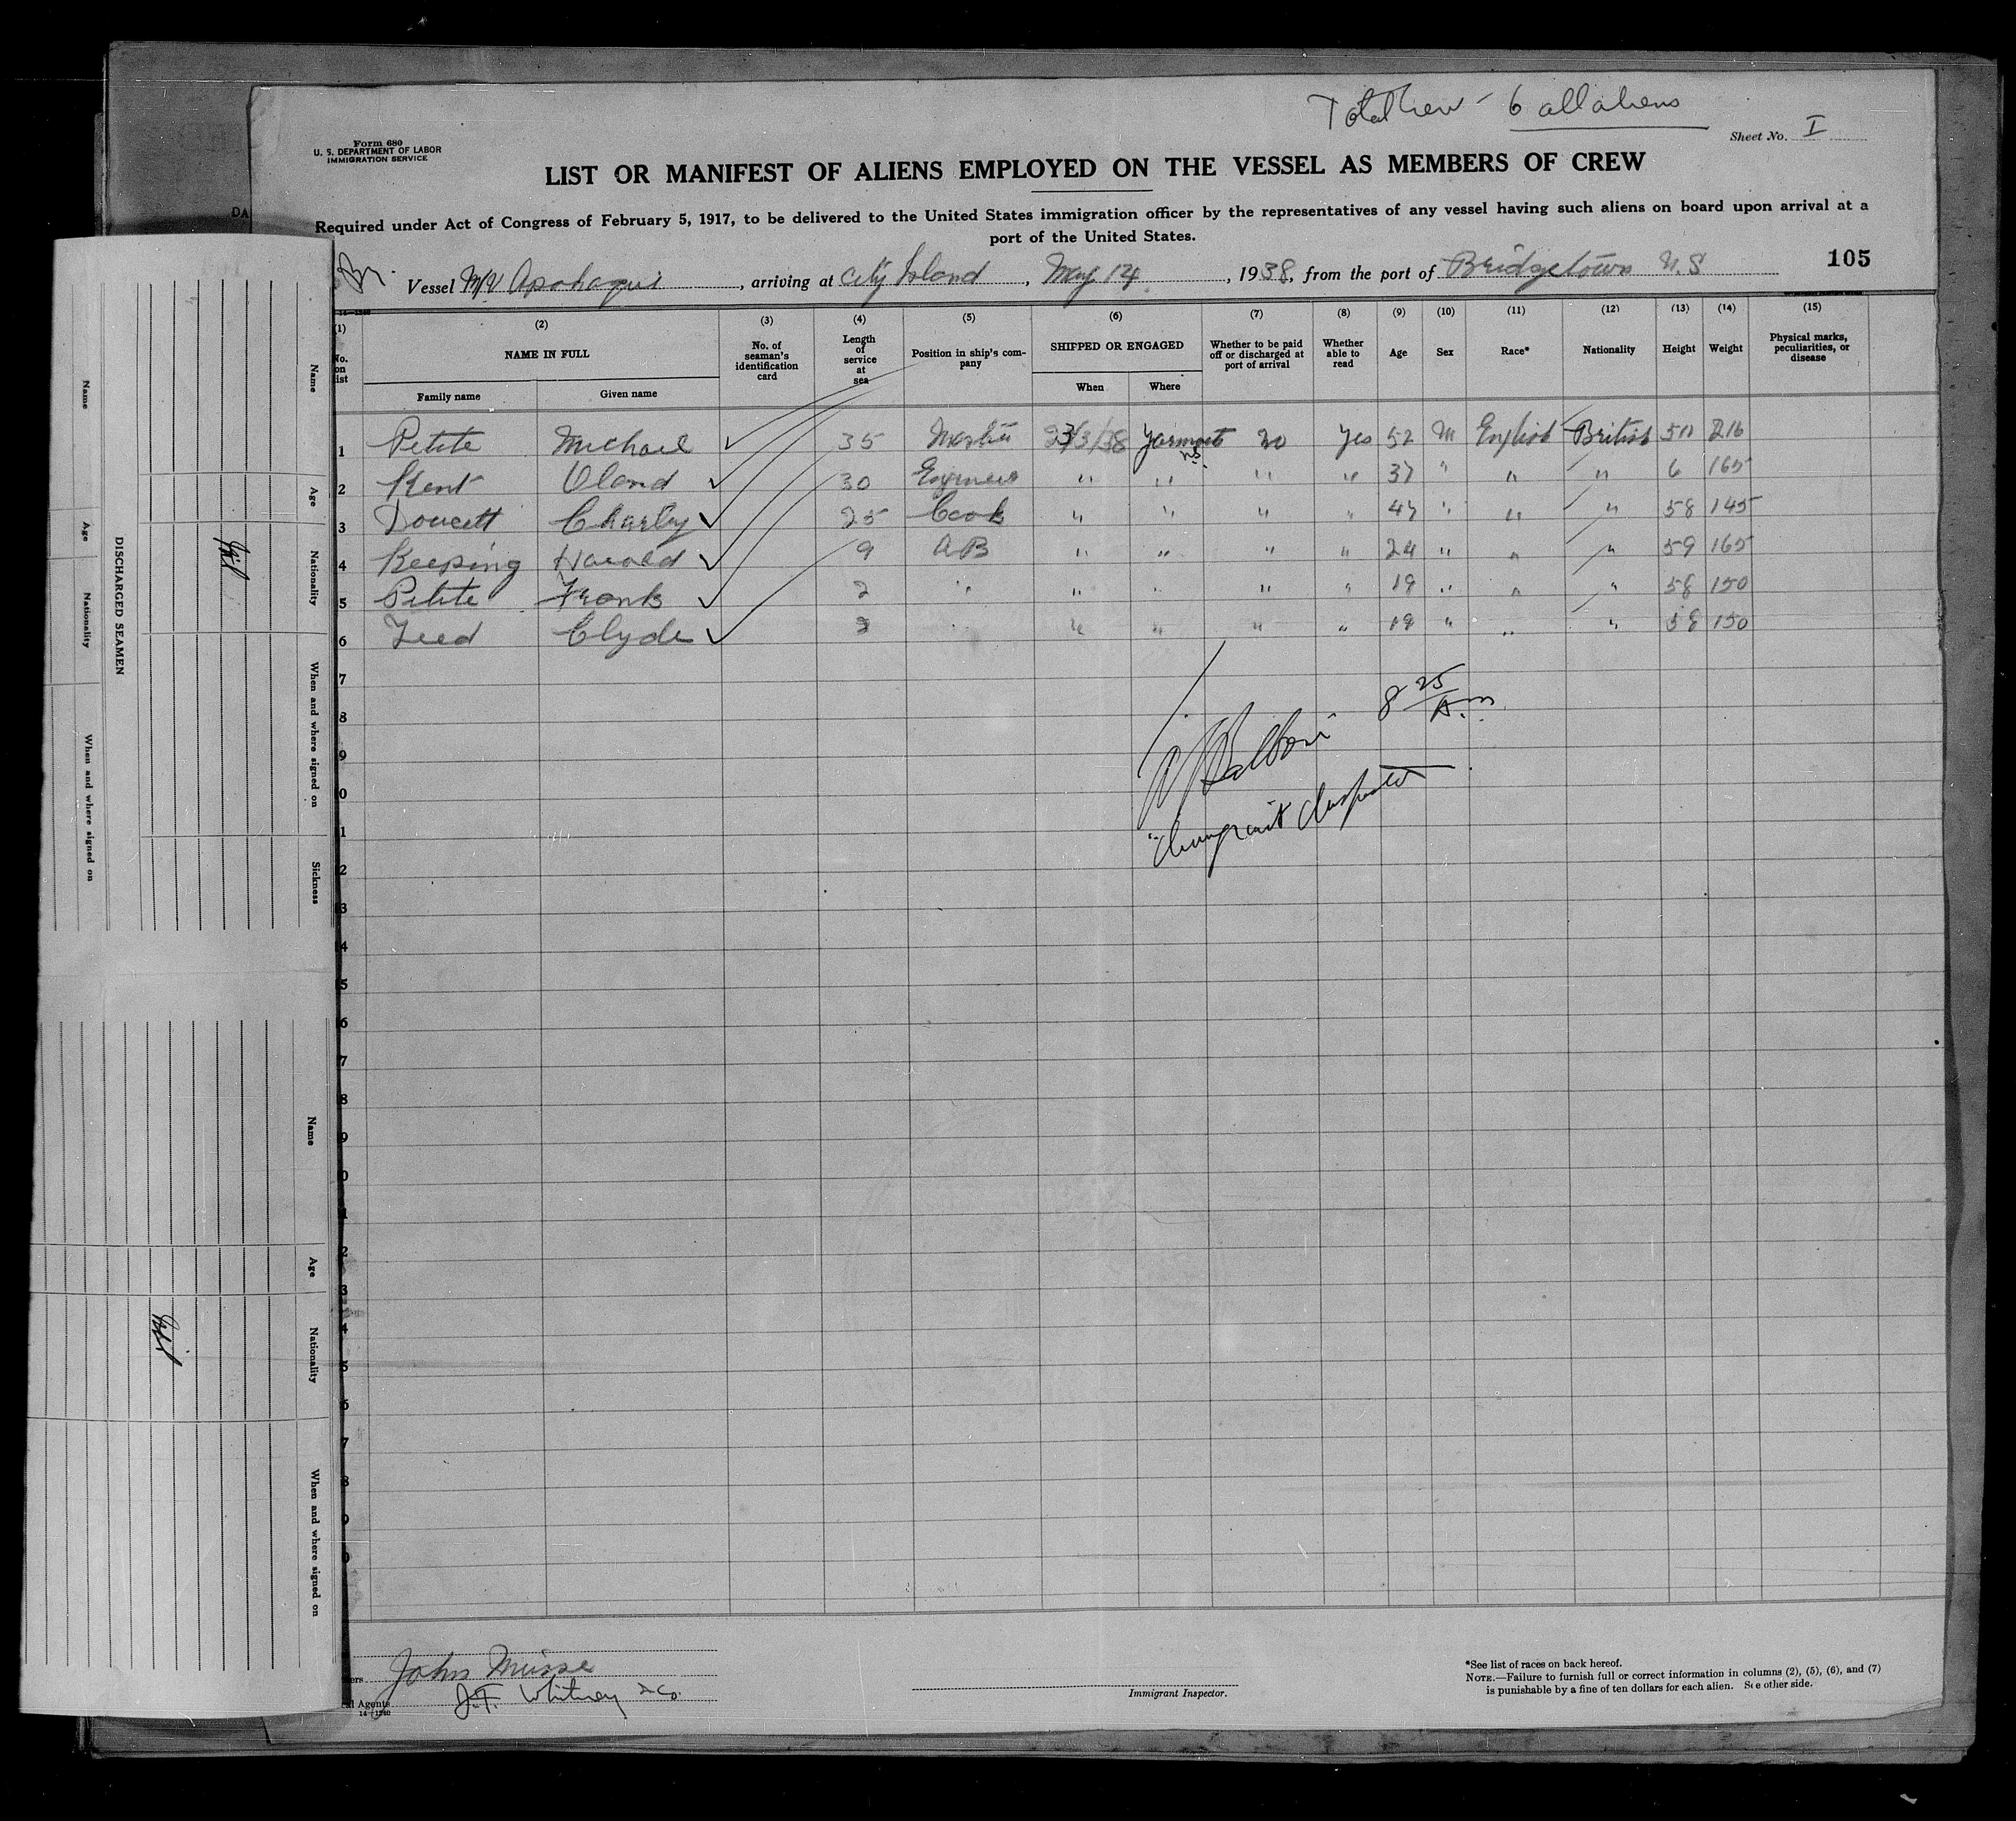 Total Crew - 6 all aliens
Form 680
U. S. DEPARTMENT OF LABOR
IMMIGRATION SERVICE
Sheet No. I
LIST OR MANIFEST OF ALIENS EMPLOYED ON THE VESSEL AS MEMBERS OF CREW
Required under Act of Congress of February 5, 1917, to be delivered to the United States immigration officer by the representatives of any vessel having such aliens on board upon arrival at a
port of the United States.
Br. Vessel M/V Apohaqui, arriving at City Island, May 14, 1938, from the port of Bridgetown N.S 105
(1) (2) (3) (4) (5) (6) (7) (8) (9) (10) (11) (12) (13) (14) (15)
No. on list NAME IN FULL No. of seaman's identification card Length of service at sea Position in ship's company SHIPPED OR ENGAGED Whether to be paid off or discharged at port of arrival Whether able to read Age Sex Race* Nationality Height Weight Physical marks, peculiarities, or disease
Family name Given name When Where
1 Petite Michael 35 Master 23/3/38 Yarmouth N.S. no Yes 52 M English British 5 11 216
2 Kent Oland 30 Engineer " " " " 37 " " " 6 165
3 Doucett Charley 25 Cook " " " " 47 " " " 5 8 145
4 Keeping Harold 9 AB " " " " 24 " " " 5 9 165
5 Petite Frank 2 " " " " " 19 " " " 5 8 150
6 " " " " " Clyde 19 " " " 5 8 150
7
8
9
0
1
2
3
4
5
6
7
8
9
0
1
2
3
4
5
6
7
8
9
0
8 25 A.m
Immigrant Inspector
DISCHARGED SEAMEN
Name Age Nationality When and where signed on
Name Age Nationality When and where signed on Sickness
Nil
Name Age Nationality When and where signed on
Nil
ers John
l Agents J.F. Whitney & Co.
14—1240
Immigrant Inspector.
*See list of races on back hereof.
NOTE.—Failure to furnish full or correct information in columns (2), (5), (6), and (7)
is punishable by a fine of ten dollars for each alien. See other side.